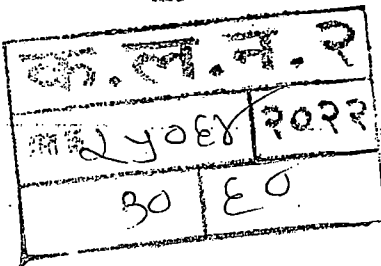 क.ल.न.२
२५०६४ २०२२
३० ६०